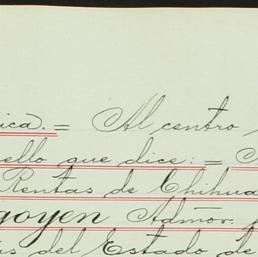 ica.= Al centro
ello que dice: =
Rentas de Chihua
goyen Admor.
as del Estado de